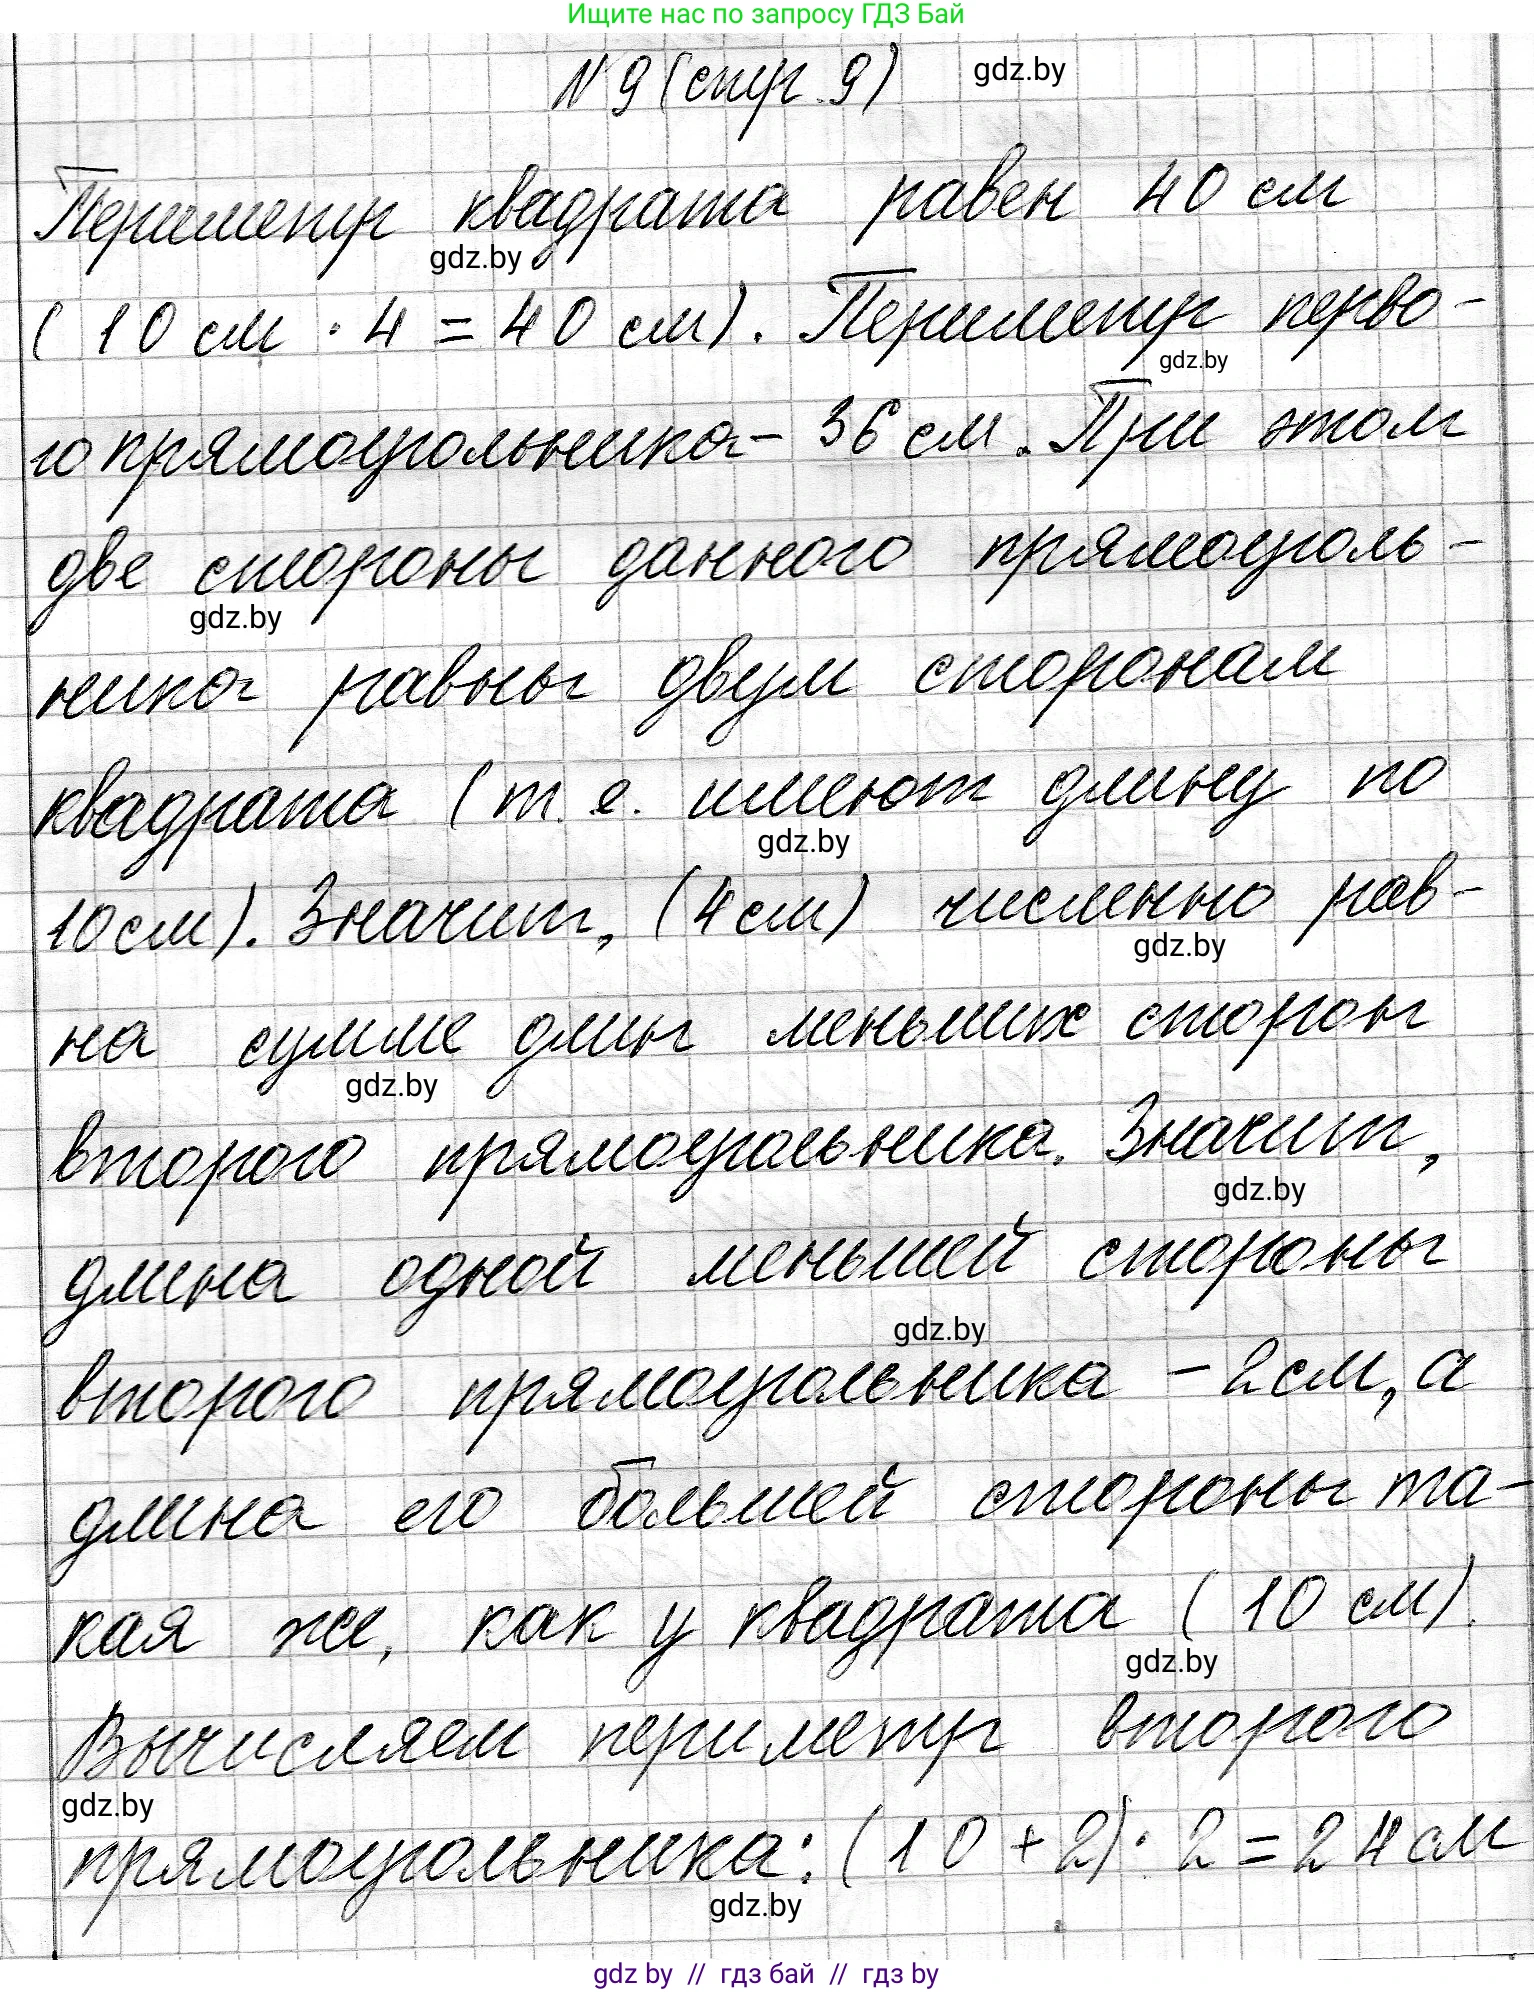 Ищите нас по запросу ГДЗ Бай
N 9 (стр. 9) gdz.by
Периметр квадрата равен 40 см
gdz.by
(10 см · 4 = 40 см). Периметр перво-
gdz.by
го прямоугольника - 36 см. При этом
две стороны данного прямоуголь-
gdz.by
ника равны двум сторонам
квадрата (т. е. имеют длину по
gdz.by
10 см). Значит, (4 см) численно рав-
gdz.by
на сумме длин меньших сторон
gdz.by
второго прямоугольника. Значит,
gdz.by
длина одной меньшей стороны
gdz.by
второго прямоугольника - 2 см, а
длина его большей стороны та-
кая же, как у квадрата (10 см).
gdz.by
Вычисляем периметр второго
gdz.by
прямоугольника: (10 + 2) · 2 = 24 см
gdz.by
gdz by // гдз бай // гдз by